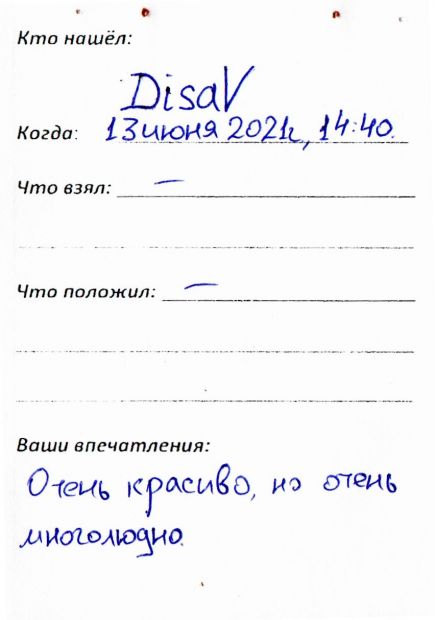 Кто нашёл:
DisaV
Когда: 13 июня 2021г, 14:40.
Что взял: —
Что положил: —
Ваши впечатления:
Очень красиво, но очень
многолюдно.